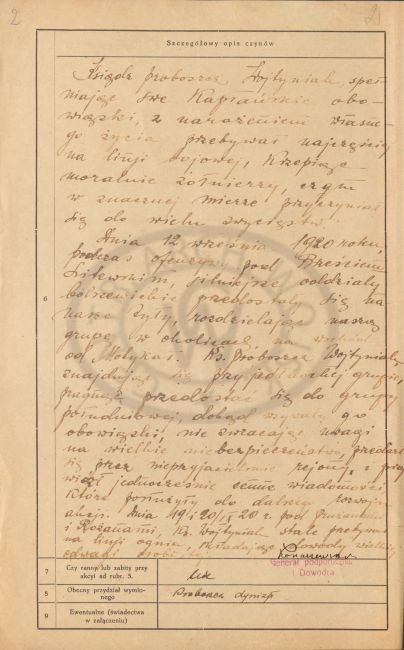 2
Szczegółowy opis czynów
Ksiądz proboszcz Wojtyniak, speł-
niając swe Kapłańskie obo-
wiązki, z narażeniem własne-
go życia przebywał najczęściej
na linji bojowej, Krzepiąc
moralnie żołnierzy, czym
w znacznej mierze przyczyniał
się do wielu zwycięstw.
Dnia 12 września 1920 roku,
podczas ofenzywy pod Brześciem
Litewskim, silniejsze oddziały
bolszewickie przedostały się na
nasze tyły, rozdzielając naszą
grupę w okolicach, na
od Motykał. Ks. proboszcz Wojtyniak,
znajdując się przy grupie,
pragnąc przedostać się do grupy
południowej, dokąd wzywały go
obowiązki, nie zwracając uwagi
na wielkie niebezpieczeństwo, przedarł
się przez nieprzyjacielskie rejony, i przy
wiózł jednocześnie cenne wiadomości
które posłużyły do dalszego rozwoju
akcji. Dnia 19 i 20/IX 20 r. pod Prużaną
i Różanami, Ks. Wojtyniak stale
na linji ognia, składając dowody wielkiej
odwagi osobistej.
6
Generał podporucznik
Dowódca
7
Czy ranny lub zabity przy
akcji ad rubr. 5.
nie
8
Obecny przydział wymie-
nionego
Proboszcz dywizji
9
Ewentualne (świadectwa
w załączeniu)